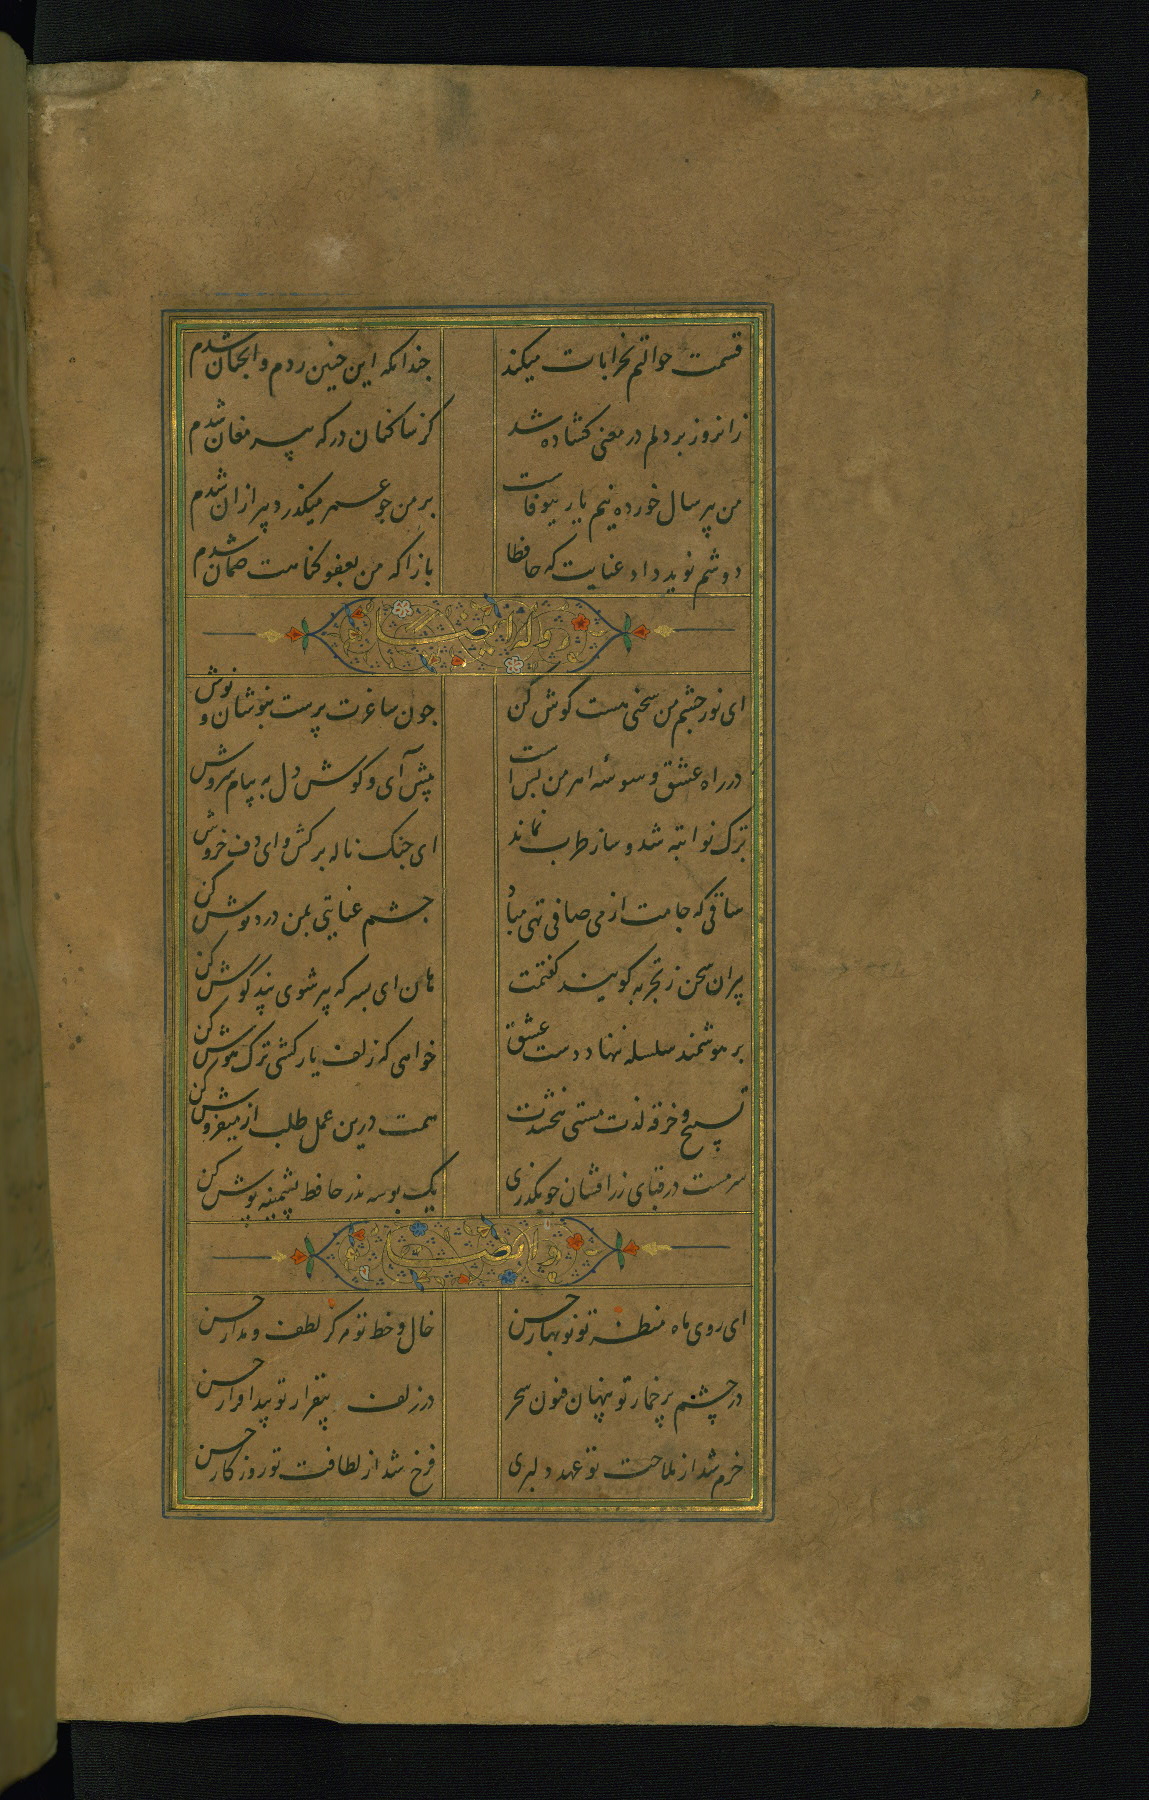 قسمت حوالتم بخرابات میکند جندانکه این جنین ردم و آنجنان شدم
زانروز بر دلم در معنی کشاده شد کز ساکنان درکه پیر مغان شدم
من پیر سال خورده نیم یار بیوفاست بر من جو عمر میکذرد پیر ازان شدم
دوشم نوید داد عنایت که حافظا بازا که من بعفو کناهت ضمان شدم
وله ایضا
ای نور جشم من سخنی هست کوش کن جون ساغرت پرست بنوشان و نوش
در راه عشق وسوسه اهرمن بسی است پیش آی و کوش دل به پیام سروش
برک نوا تبه شد و ساز طرب نماند ای جنک ناله برکش و ای دف خروش
ساقی که جامت از می صافی تهی مباد جشم عنایتی بمن درد نوش کن
پیران سخن ز تجربه کویند کفتمت هان ای پسر که پیر شوی پند کوش کن
بر هوشمند سلسله ننهاد دست عشق خواهی که زلف یار کشی ترک هوش کن
تسبیح و خرقه لذت مستی نبخشدت همت درین عمل طلب از میفروش کن
سرمست در قبای زرافشان جو بکذری یک بوسه نذر حافظ پشمینه پوش کن
وله ایضا
ای روی ماه منظر تو نوبهار حسن خال و خط تو مرکز لطف و مدار حسن
در چشم پر خمار تو پنهان فنون سحر در زلف بیقرار تو پیدا قرار حسن
خرم شد از ملاحت تو عهد دلبری فرخ شد از لطافت تو روزکار حسن